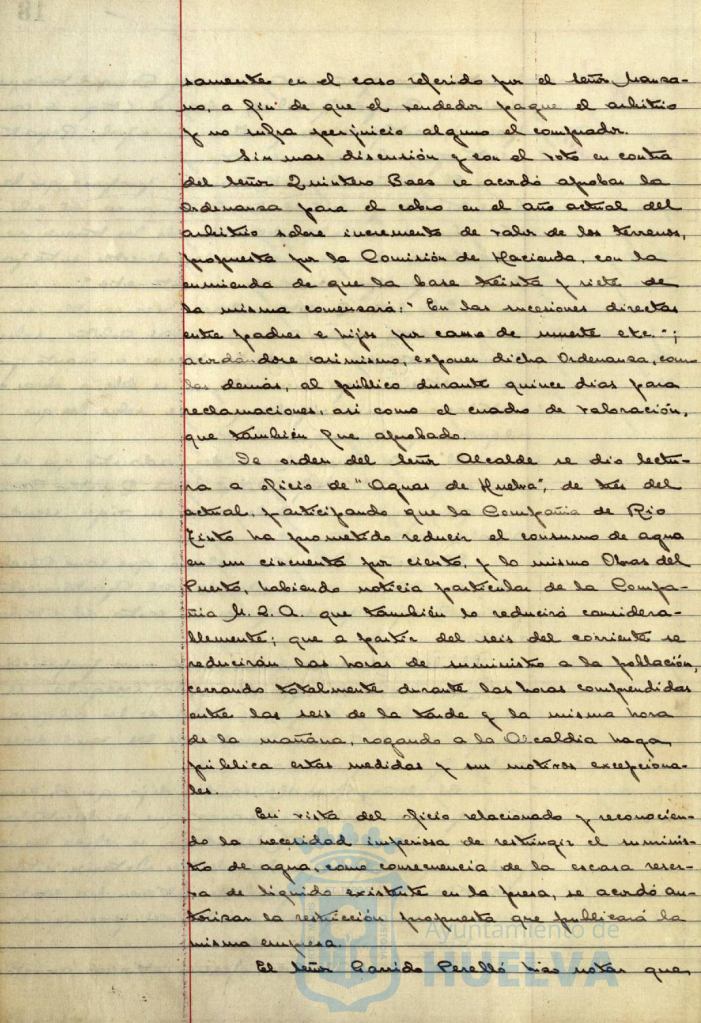 samente en el caso referido por el Señor Manza-
no, a fin de que el vendedor pague el arbitrio
y no sufra perjuicio alguno el comprador.
Sin mas discusión y con el voto en contra
del Señor Quintero Baez se acordó aprobar la
Ordenanza para el cobro en el año actual del
arbitrio sobre incremento de valor de los terrenos,
propuesta por la Comisión de Hacienda, con la
enmienda de que la base treinta y siete de
la misma comenzará: "En las sucesiones directas
entre padres e hijos por causa de muerte etc.";
acordándose asimismo, exponer dicha Ordenanza, como
las demás, al público durante quince dias para
reclamaciones, asi como el cuadro de valoración,
que también fue aprobado.
De orden del Señor Alcalde se dio lectu-
ra a oficio de "Aguas de Huelva", de tres del
actual, participando que la Compañia de Rio
Tinto ha prometido reducir el consumo de agua
en un cincuenta por ciento, y lo mismo Obras del
Puerto, habiendo noticia particular de la Compa-
ñia M. Z. A. que también lo reducirá considera-
blemente; que a partir del seis del corriente se
reducirán las horas de suministro a la población,
cerrando totalmente durante las horas comprendidas
entre las seis de la tarde y la misma hora
de la mañana, rogando a la Alcaldia haga
pública estas medidas y sus motivos excepciona-
les.
En vista del oficio relacionado y reconocien-
do la necesidad imperiosa de restringir el suminis-
tro de agua, como consecuencia de la escasa reser-
va de liquido existente en la presa, se acordó au-
torizar la restricción propuesta que publicará la
misma empresa.
El Señor Garrido Perelló hizo notar que
Ayuntamiento de
HUELVA